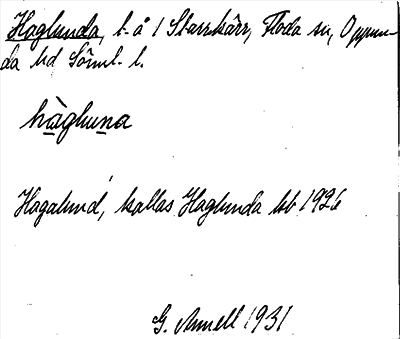 Haglunda, t. å 1 Starrkärr, Floda sn, Oppun-
da hd Söml. l.
hàgluna
Hagalund, kallas Haglunda kb 1926
G. Annell 1931